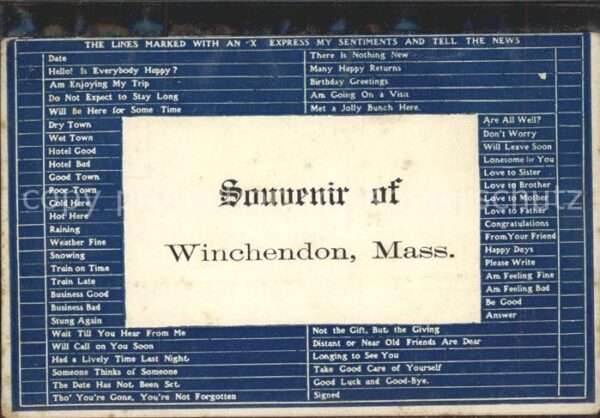 THE LINES MARKED WITH AN "X" EXPRESS MY SENTIMENTS AND TELL THE NEWS
Date
Hello! Is Everybody Happy?
Am Enjoying My Trip
Do Not Expect to Stay Long
Will Be Here for Some Time
There Is Nothing New
Many Happy Returns
Birthday Greetings
Am Going On a Visit
Met a Jolly Bunch Here.
Dry Town
Wet Town
Hotel Good
Hotel Bad
Good Town
Poor Town
Cold Here
Hot Here
Raining
Weather Fine
Snowing
Train on Time
Train Late
Business Good
Business Bad
Stung Again
Souvenir of
Winchendon, Mass.
Are All Well?
Don't Worry
Will Leave Soon
Lonesome for You
Love to Sister
Love to Brother
Love to Mother
Love to Father
Congratulations
From Your Friend
Happy Days
Please Write
Am Feeling Fine
Am Feeling Bad
Be Good
Answer
Wait Till You Hear From Me
Will Call on You Soon
Had a Lively Time Last Night
Someone Thinks of Someone
The Date Has Not Been Set
Tho' You're Gone, You're Not Forgotten
Not the Gift, But the Giving
Distant or Near Old Friends Are Dear
Longing to See You
Take Good Care of Yourself
Good Luck and Good-Bye.
Signed